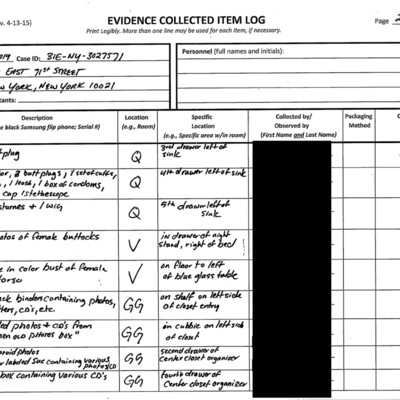 v. 4-13-15)
EVIDENCE COLLECTED ITEM LOG
Page 2
Print Legibly. More than one line may be used for each item, if necessary.
019 Case ID: 31E-NY-3027571
EAST 71st STREET
W YORK, NEW YORK 10021
tants:
Personnel (full names and initials):
Description
e black Samsung flip phone; Serial #)
Location
(e.g., Room)
Specific
Location
(e.g., Specific area w/in room)
Collected by/
Observed by
(First Name and Last Name)
Packaging
Method
C
plug
Q
3rd drawer left of
sink
or, 2 buttplugs, 1 set of cuffs,
, 1 leash, 1 box of condoms,
cap 1 stethoscope
Q
4th drawer left of
sink
stumes + 1 wig
Q
5th drawer left of
sink
otos of female buttocks
V
in drawer of night
stand, right of bed
e in color bust of female
torso
V
on floor to left
of blue glass table
ck binders containing photos,
tters, cd's, etc.
GG
on shelf on left side
of closet entry
photos + CD's from
box"
GG
in cubbie on left side
of closet
roid photos
labeled containing various
GG
second drawer of
center closet organizer
box containing various CD's
GG
fourth drawer of
center closet organizer